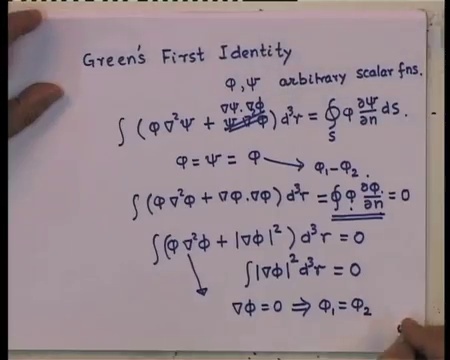 Green's First Identity
φ, ψ arbitrary scalar fns.
∇ψ.∇φ
∫ (φ∇²ψ + ) d³r = ∮_S φ ∂ψ/∂n dS.
φ = ψ = φ → φ₁-φ₂.
∫ (φ∇²φ + ∇φ.∇φ) d³r = ∮ φ ∂φ/∂n = 0
∫ (φ∇²φ + |∇φ|²) d³r = 0
∫ |∇φ|² d³r = 0
∇φ = 0 ⇒ φ₁ = φ₂